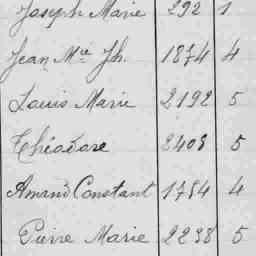 Joseph Marie 292 1
Jean Mie Jh. 1874 4
Louis Marie 2192 5
Théodore 2403 5
Amand Constant 1754 4
Pierre Marie 2238 5